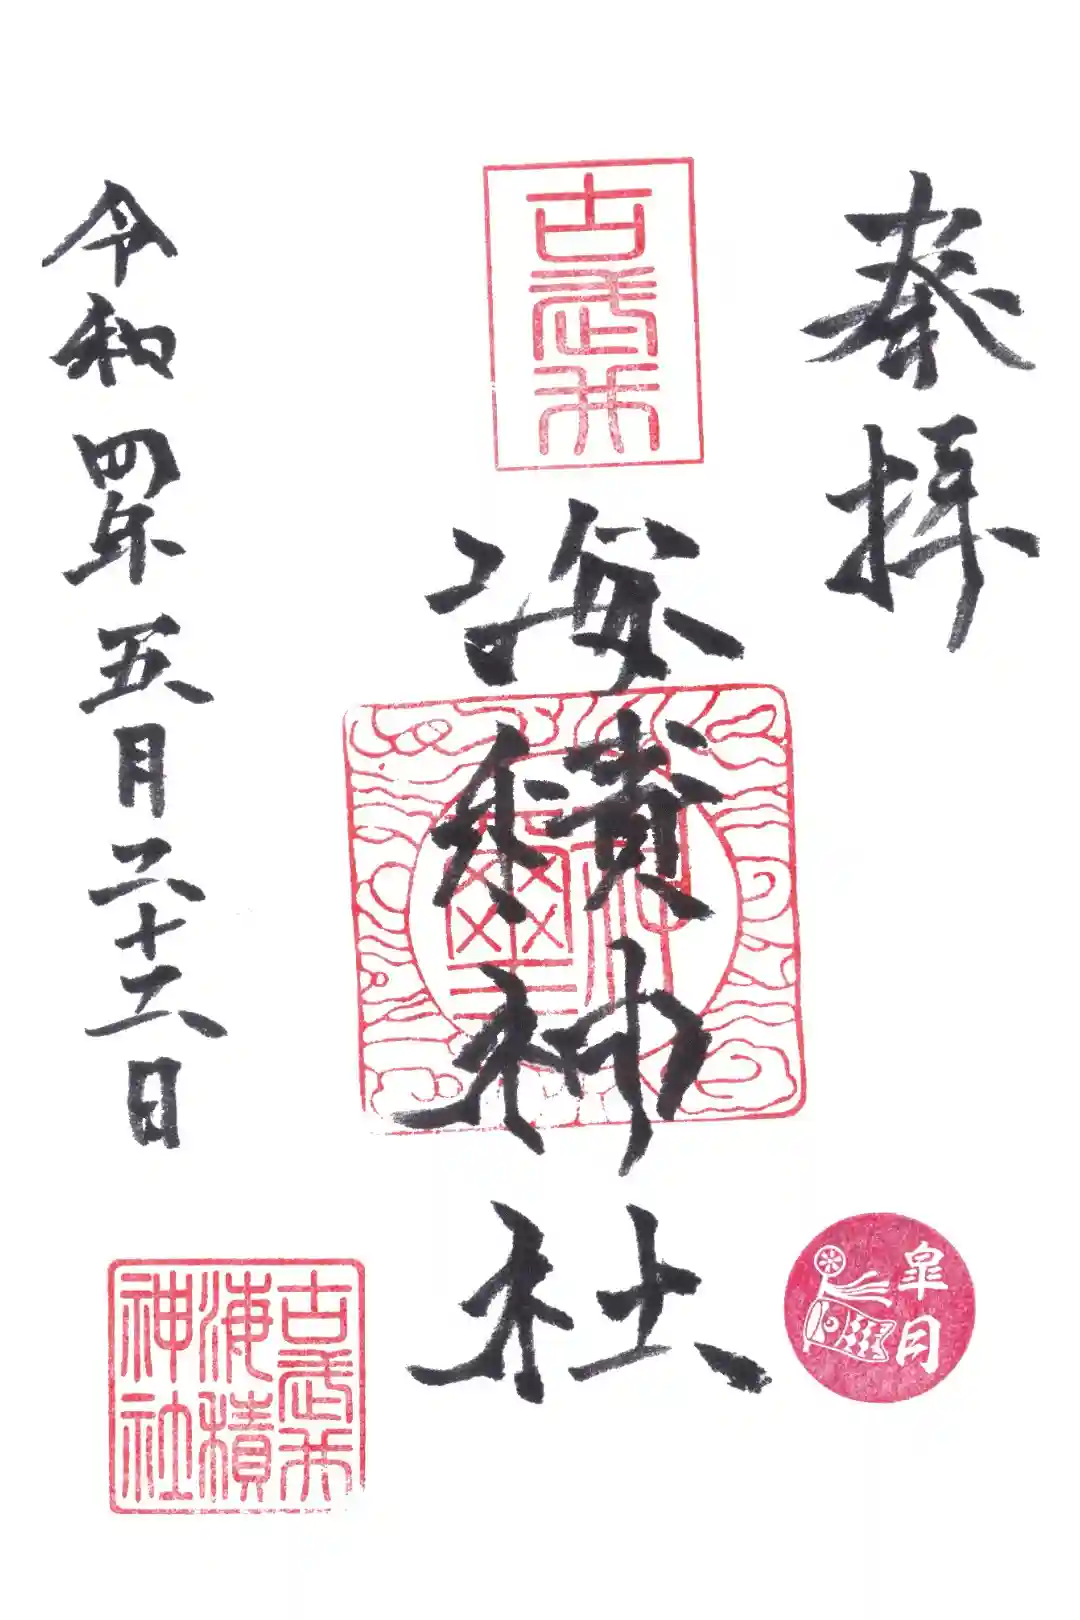 奉拝
皐月
古武井
海積神社
神璽
令和四年五月二十二日
古武井
海積
神社